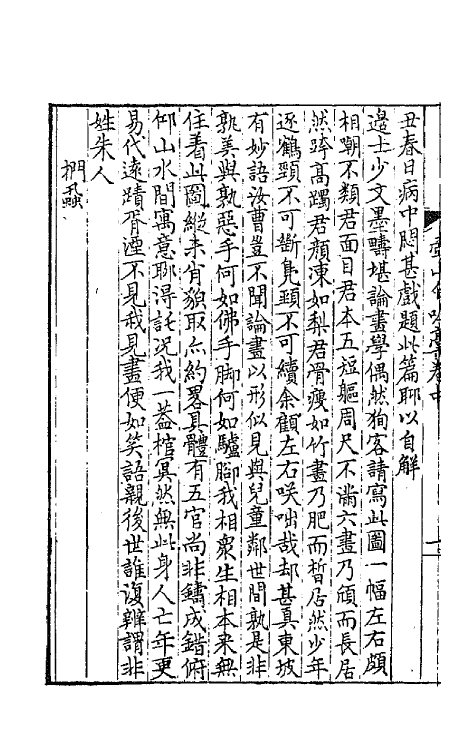 丑春日病中悶甚戲題此篇聊以自解
邊士少文墨疇堪論畫學偶然狥客請寫此圖一幅左右頗
相嘲不類君面目君本五短軀周尺不滿六畫乃頎而長居
然誇高躅君顏凍如梨君骨瘦如竹畫乃肥而皙居然少年
逐鶴頸不可斷鳧頸不可續余顧左右咲咄哉却甚真東坡
有妙語汝曹豈不聞論畫以形似見與兒童鄰世間孰是非
孰美與孰惡手何如佛手脚何如驢脚我相衆生相本来無
住着此圖縱未肖貌取亦約畧具體有五官尚非鑄成錯俯
仰山水間寓意聊淂託況我一葢棺冥然無此身人亡年更
易代遠蹟胥湮不見我見畫便如笑語親後世誰復辨謂非
姓朱人
捫蝨
壺山自吟藁卷中